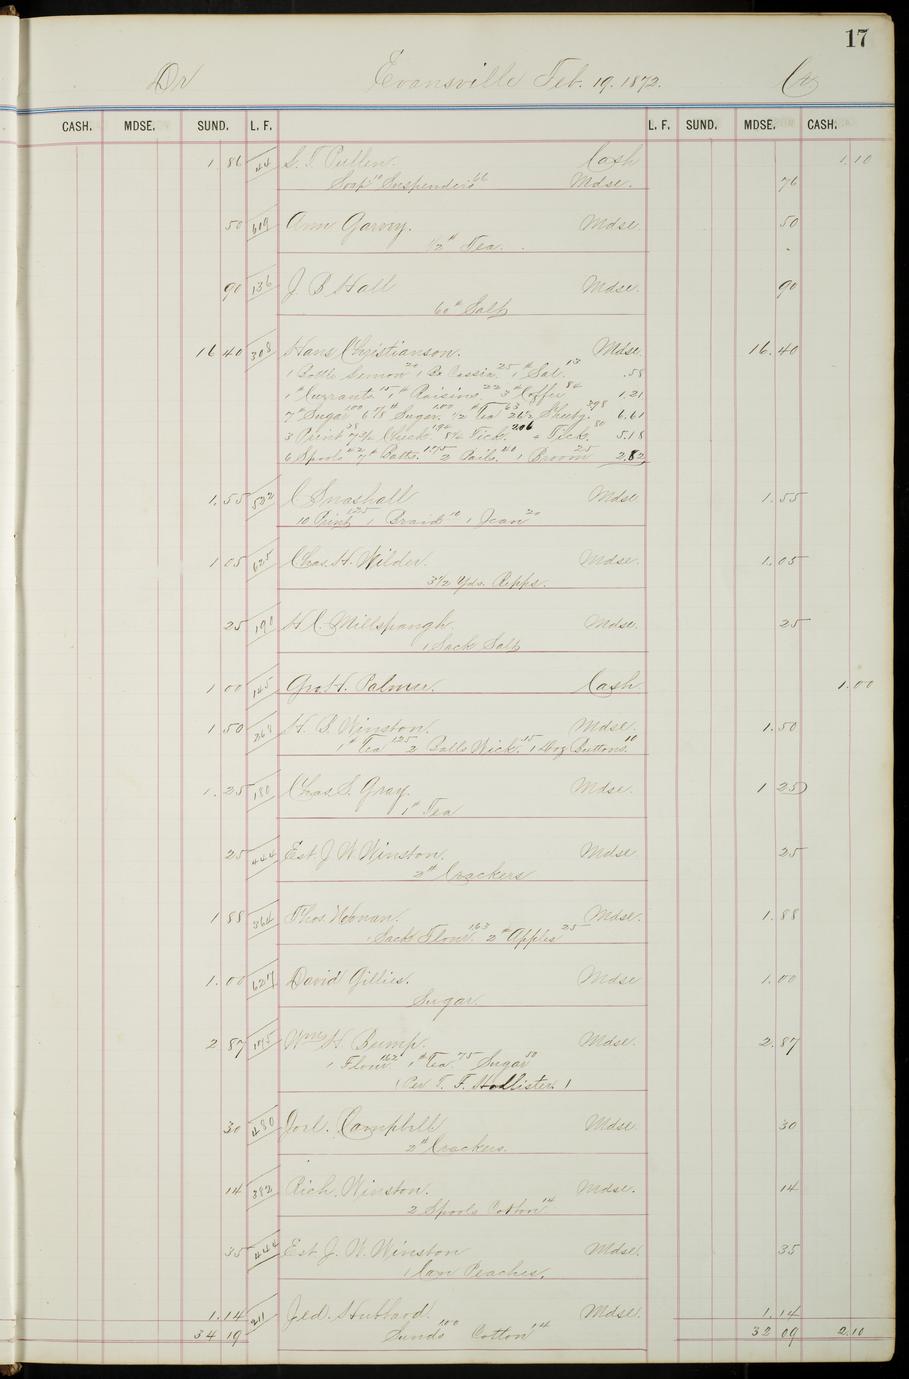 17
Dr Evansville Feb. 19. 1872. Cr
CASH. MDSE. SUND. L. F. L. F. SUND. MDSE. CASH.
1 86 44 S. T. Pullen. Cash 1.10
Soap 10 Suspenders 66 Mdse. 76
50 619 Ann Garvey. Mdse. 50
1/2 # Tea.
90 136 J. B. Hall Mdse. 90
60 # Salt
16 40 308 Hans Christianson. Mdse. 16.40
1 Bottle Lemon 20 1 Bx Cassia 25 1 # Sal. 13 .58
1 # Currants 15 1 # Raisins 22 3 # Coffee 84 1.21
7 # Sugar 100 6 7/8 # Sugar 100 1/2 # Tea 63 26 1/2 Sheetg. 398 6.61
3 Print 38 7 3/4 Check 194 8 1/4 Tick. 206 4 Tick. 80 5.18
6 Spools 42 7 # Batts. 1.75 2 Pails. 40 1 Broom 25 2.82
1.55 522 C Snashall Mdse 1.55
10 Print 125 1 Braid 10 1 Jean 20
1 05 625 Chas. H. Wilder. Mdse. 1.05
3 1/2 Yds. Repps.
25 191 H. C. Millspaugh Mdse. 25
1 Sack Salt
1 00 145 Geo. H. Palmer. Cash 1.00
1.50 268 H. B. Winston. Mdse. 1.50
1 # Tea 125 2 Balls Wick. 15 1 Doz Buttons. 10
1.25 180 Chas. S. Gray. Mdse. 1 25
1 # Tea
25 444 Est. J. W. Winston. Mdse 25
2 # Crackers
1 88 364 Thos. Noonan. Mdse. 1.88
1 Sack Flour. 163 2 # Apples 25
1.00 627 David Gillies. Mdse 1.00
Sugar.
2 87 175 Wm. H. Bump. Mdse 2.87
1 Flour. 162 1 # Tea. 75 Sugar 50
( Per T. F. Hollister. )
30 480 Joel. Campbell Mdse 30
2 # Crackers.
14 382 Rich. Winston. Mdse. 14
2 Spools Cotton 14
35 444 Est J. W. Winston Mdse. 35
1 Can Peaches.
1.14 211 Jed. Hubbard. Mdse. 1.14
34 19 Sunds 100 Cotton 14 32 09 2.10